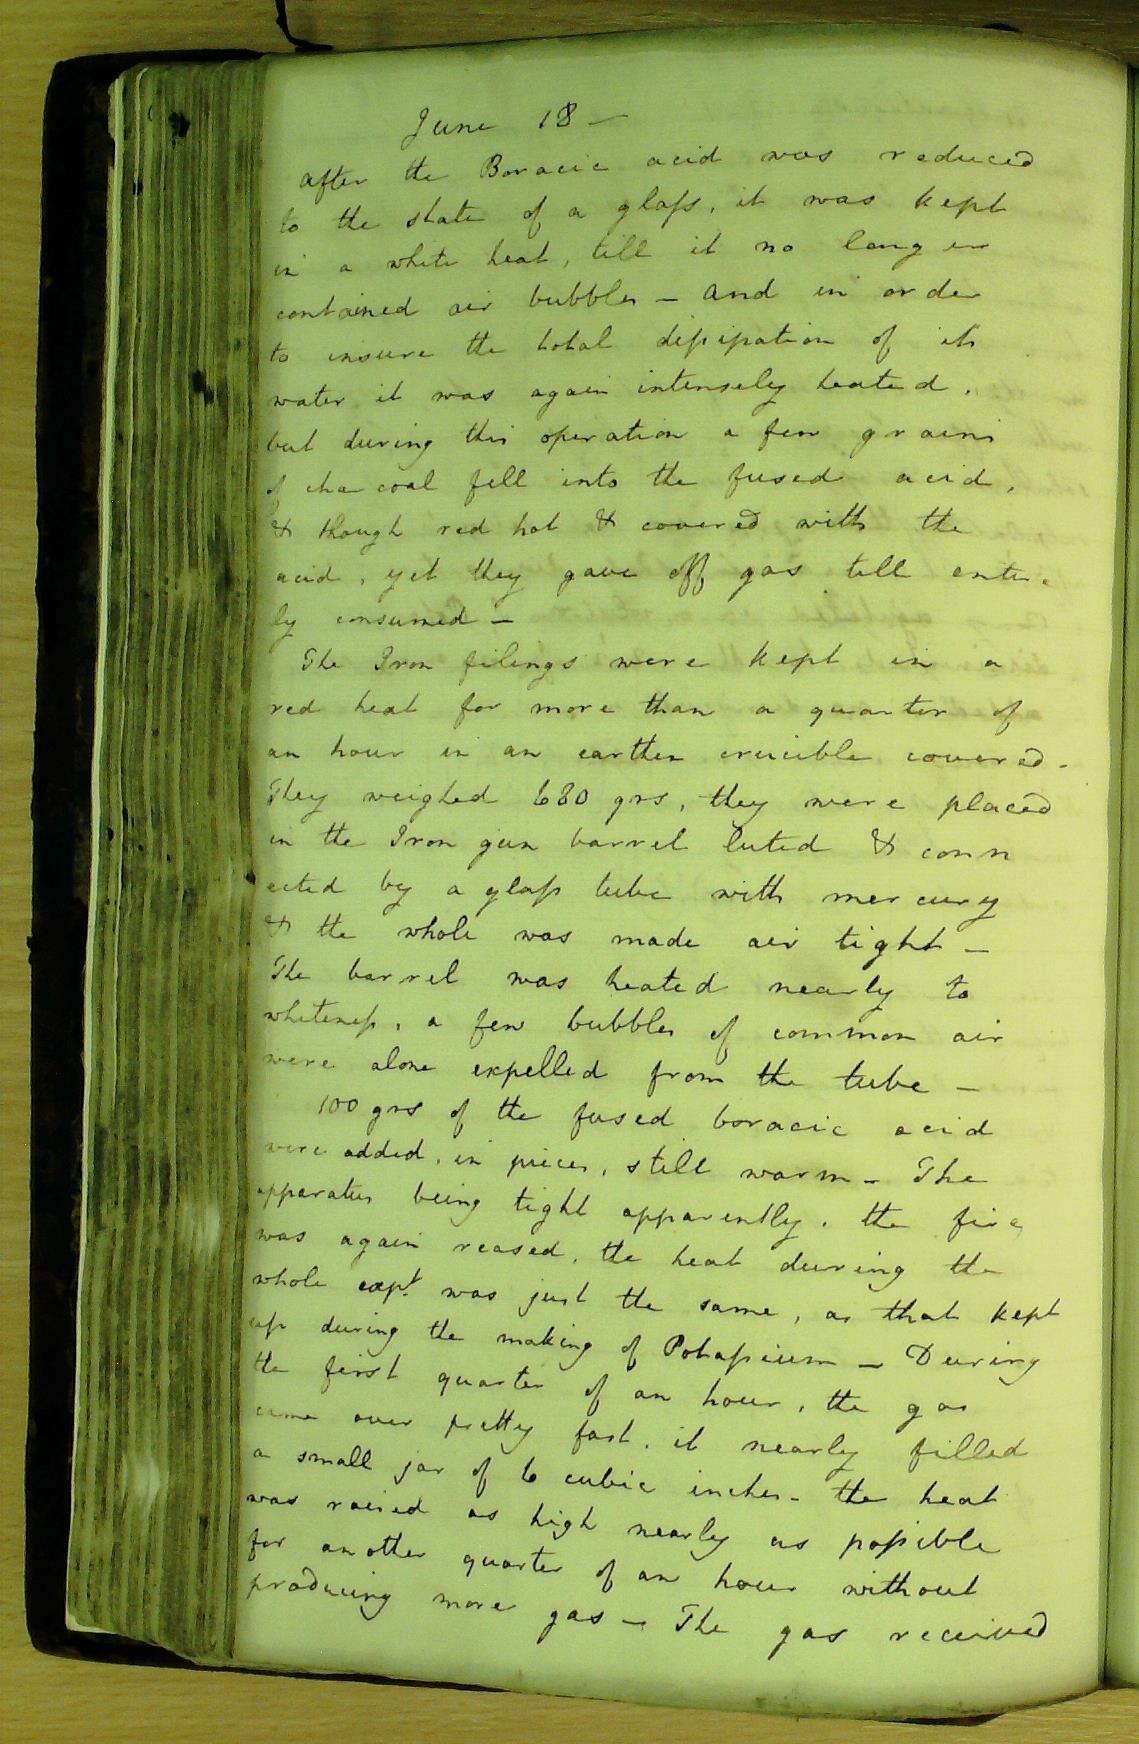 June 18 —
after the Boracic acid was reduced
to the state of a glass, it was kept
in a white heat, till it no longer
contained air bubbles — and in order
to insure the total dissipation of its
water it was again intensely heated.
but during this operation a few grains
of charcoal fell into the fused acid,
& though red hot & covered with the
acid, yet they gave off gas till entire
ly consumed —
The Iron filings were kept in a
red heat for more than a quarter of
an hour in an earthen crucible covered -
They weighed 680 grs, they were placed
in the Iron gun barrel luted & conn
ected by a glass tube with mercury
& the whole was made air tight —
The barrel was heated nearly to
whiteness, a few bubbles of common air
were alone expelled from the tube —
100 grs of the fused boracic acid
were added, in pieces, still warm — The
apparatus being tight apparently, the fire
was again reased, the heat during the
whole expt was just the same, as that kept
up during the making of Potassium — During
the first quarter of an hour, the gas
came over pretty fast, it nearly filled
a small jar of 6 cubic inches - the heat
was raised as high nearly as possible
for another quarter of an hour without
producing more gas — The gas received